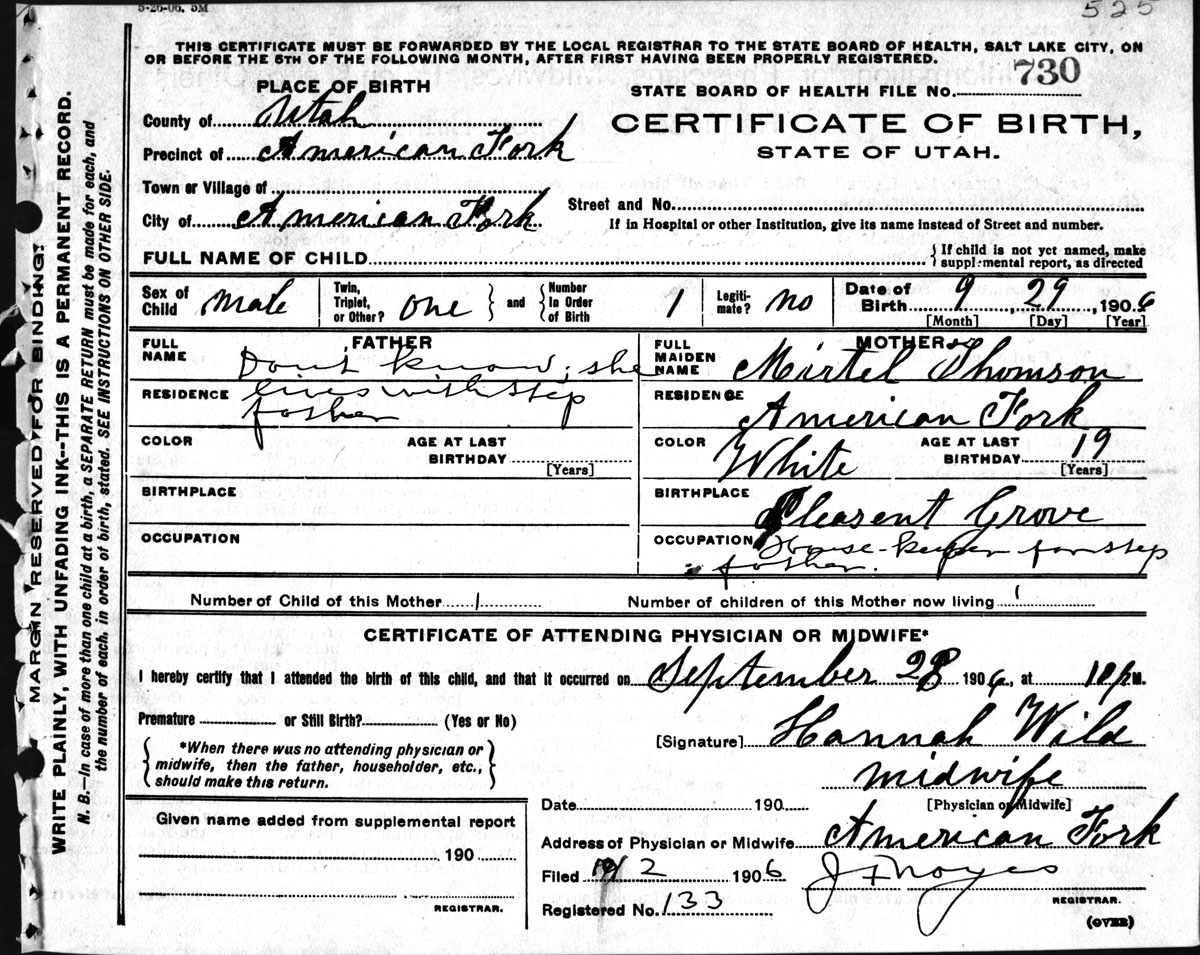 5-26-06. 5M
525
THIS CERTIFICATE MUST BE FORWARDED BY THE LOCAL REGISTRAR TO THE STATE BOARD OF HEALTH, SALT LAKE CITY, ON
OR BEFORE THE 5TH OF THE FOLLOWING MONTH, AFTER FIRST HAVING BEEN PROPERLY REGISTERED.
PLACE OF BIRTH
STATE BOARD OF HEALTH FILE NO. 730
County of Utah
CERTIFICATE OF BIRTH,
STATE OF UTAH.
Precinct of American Fork
Town or Village of
Street and No.
City of American Fork
If in Hospital or other Institution, give its name instead of Street and number.
FULL NAME OF CHILD
{ If child is not yet named, make
supplemental report, as directed
Sex of Child male
Twin, Triplet, or Other? one } and { Number In Order of Birth 1
Legitimate? no
Date of Birth 9, 29, 1906
[Month] [Day] [Year]
FATHER
FULL NAME Don't know, she
RESIDENCE lives with step
father
COLOR
AGE AT LAST BIRTHDAY
[Years]
BIRTHPLACE
OCCUPATION
MOTHER
FULL MAIDEN NAME Mirtel Thomson
RESIDENCE American Fork
COLOR White
AGE AT LAST BIRTHDAY 19
[Years]
BIRTHPLACE Pleasent Grove
OCCUPATION House-keeper for step
father.
Number of Child of this Mother 1
Number of children of this Mother now living 1
CERTIFICATE OF ATTENDING PHYSICIAN OR MIDWIFE*
I hereby certify that I attended the birth of this child, and that it occurred on September 28 1906, at M.
Premature or Still Birth? (Yes or No)
{ *When there was no attending physician or
midwife, then the father, householder, etc.,
should make this return. }
[Signature] Hannah Wild
midwife
[Physician or Midwife]
Date 190
Given name added from supplemental report
190
REGISTRAR.
Address of Physician or Midwife American Fork
Filed 10/2 1906
J F Noyes
REGISTRAR.
Registered No. 133
(OVER)
MARGIN RESERVED FOR BINDING:
WRITE PLAINLY, WITH UNFADING INK--THIS IS A PERMANENT RECORD.
N. B.—In case of more than one child at a birth, a SEPARATE RETURN must be made for each, and
the number of each, in order of birth, stated. SEE INSTRUCTIONS ON OTHER SIDE.